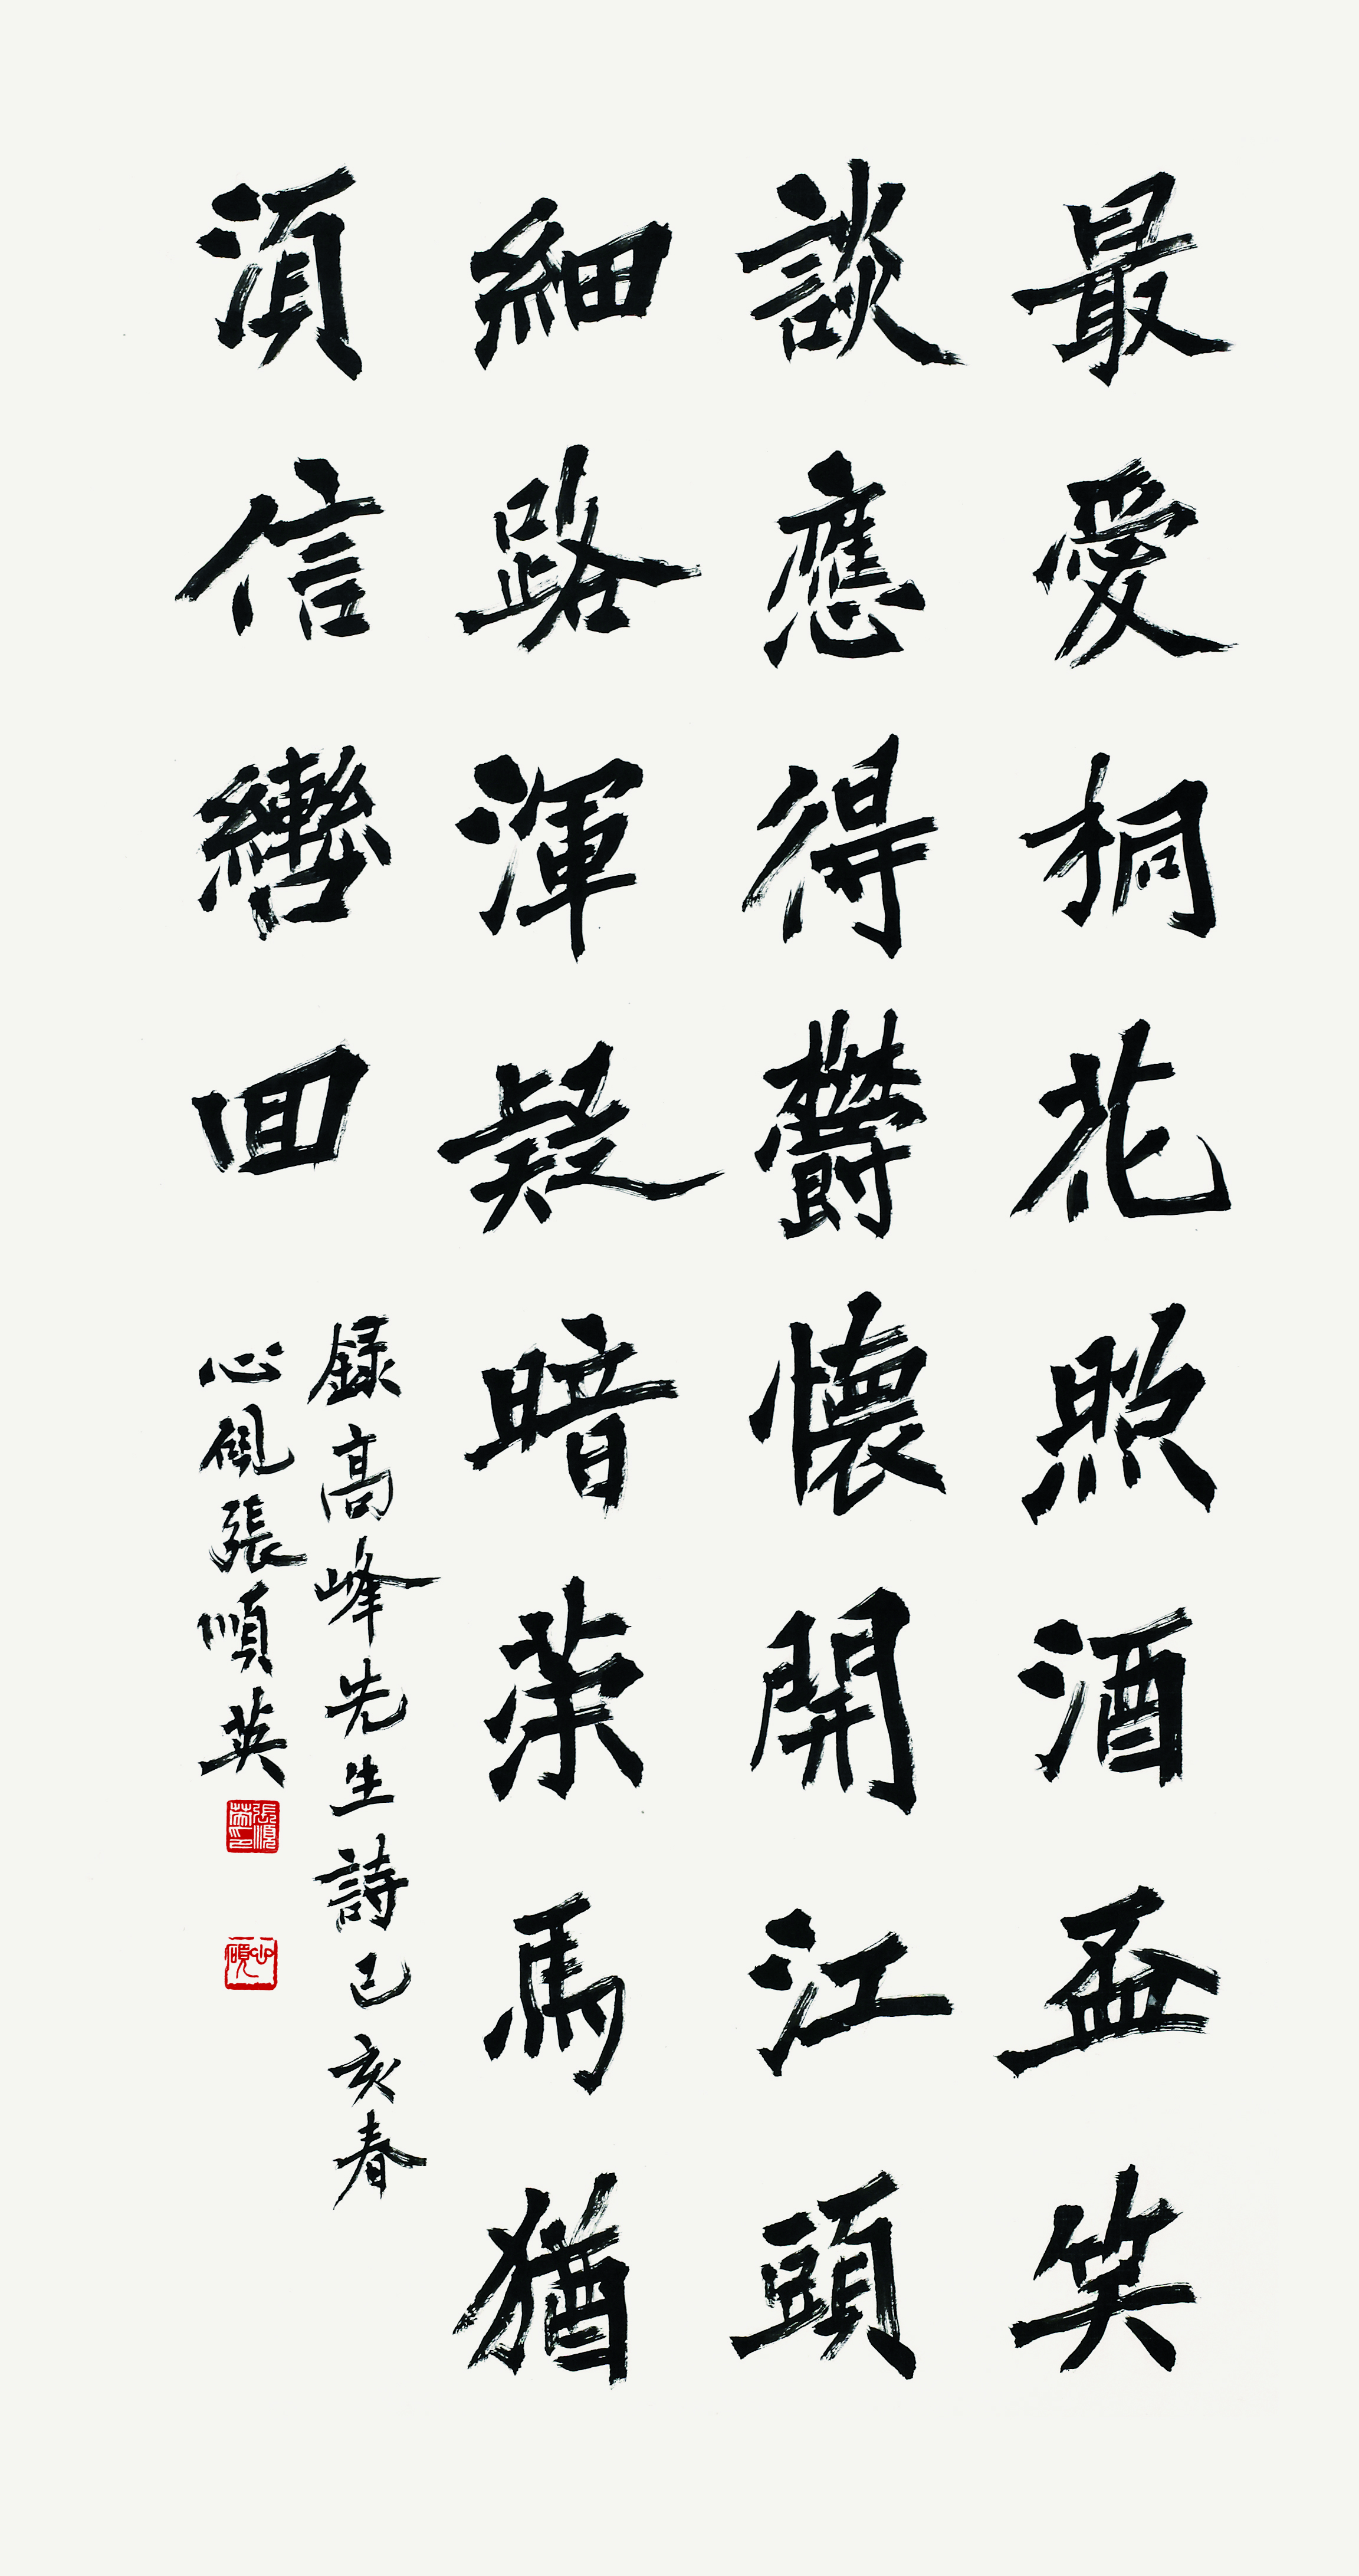 最愛桐花照酒盃笑
談應得鬱懷開江頭
細路渾疑暗葉馬猶
須信轡回
録高峰先生詩己亥春
心硯張順英
張順英印
心硯